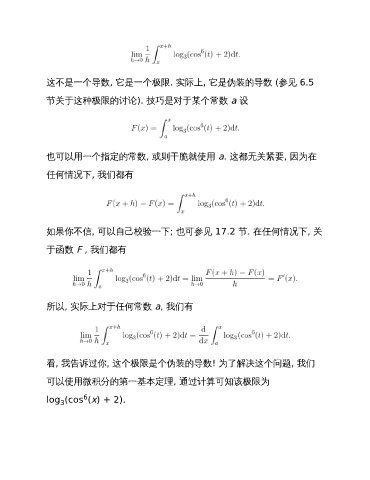 lim_{h→0} 1/h ∫_x^{x+h} log₃(cos⁶(t) + 2)dt.
这不是一个导数, 它是一个极限. 实际上, 它是伪装的导数 (参见 6.5
节关于这种极限的讨论). 技巧是对于某个常数 a 设
F(x) = ∫_a^x log₃(cos⁶(t) + 2)dt.
也可以用一个指定的常数, 或则干脆就使用 a. 这都无关紧要, 因为在
任何情况下, 我们都有
F(x + h) − F(x) = ∫_x^{x+h} log₃(cos⁶(t) + 2)dt.
如果你不信, 可以自己校验一下; 也可参见 17.2 节. 在任何情况下, 关
于函数 F , 我们都有
lim_{h→0} 1/h ∫_x^{x+h} log₃(cos⁶(t) + 2)dt = lim_{h→0} (F(x + h) − F(x))/h = F′(x).
所以, 实际上对于任何常数 a, 我们有
lim_{h→0} 1/h ∫_x^{x+h} log₃(cos⁶(t) + 2)dt = d/dx ∫_a^x log₃(cos⁶(t) + 2)dt.
看, 我告诉过你, 这个极限是个伪装的导数! 为了解决这个问题, 我们
可以使用微积分的第一基本定理, 通过计算可知该极限为
log₃(cos⁶(x) + 2).